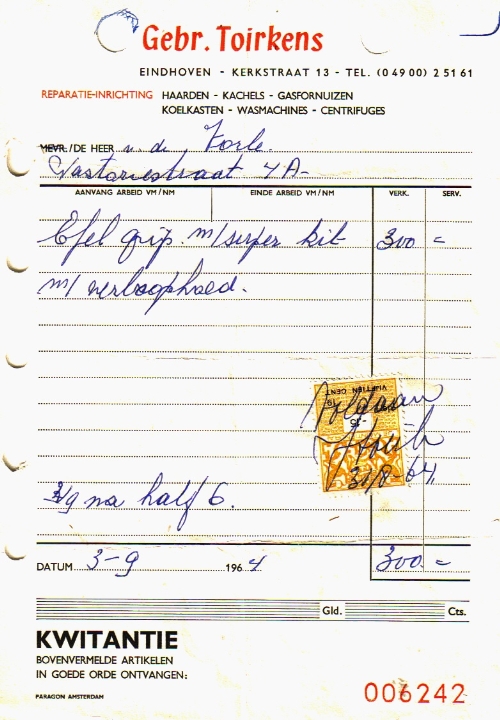 Gebr. Toirkens
EINDHOVEN - KERKSTRAAT 13 - TEL. (04900) 25161
REPARATIE-INRICHTING HAARDEN - KACHELS - GASFORNUIZEN
KOELKASTEN - WASMACHINES - CENTRIFUGES
MEVR./DE HEER v. de
Pastoriestraat 4A-
AANVANG ARBEID VM/NM EINDE ARBEID VM/NM VERK. SERV.
Efel grijs m/super kit 300 =
m/ verloophoed.
VIJFTIEN CENT
15
Voldaan
31/8-64
3/9 na half 6.
DATUM 3-9 1964 300 =
Gld. Cts.
KWITANTIE
BOVENVERMELDE ARTIKELEN
IN GOEDE ORDE ONTVANGEN:
PARAGON AMSTERDAM
006242